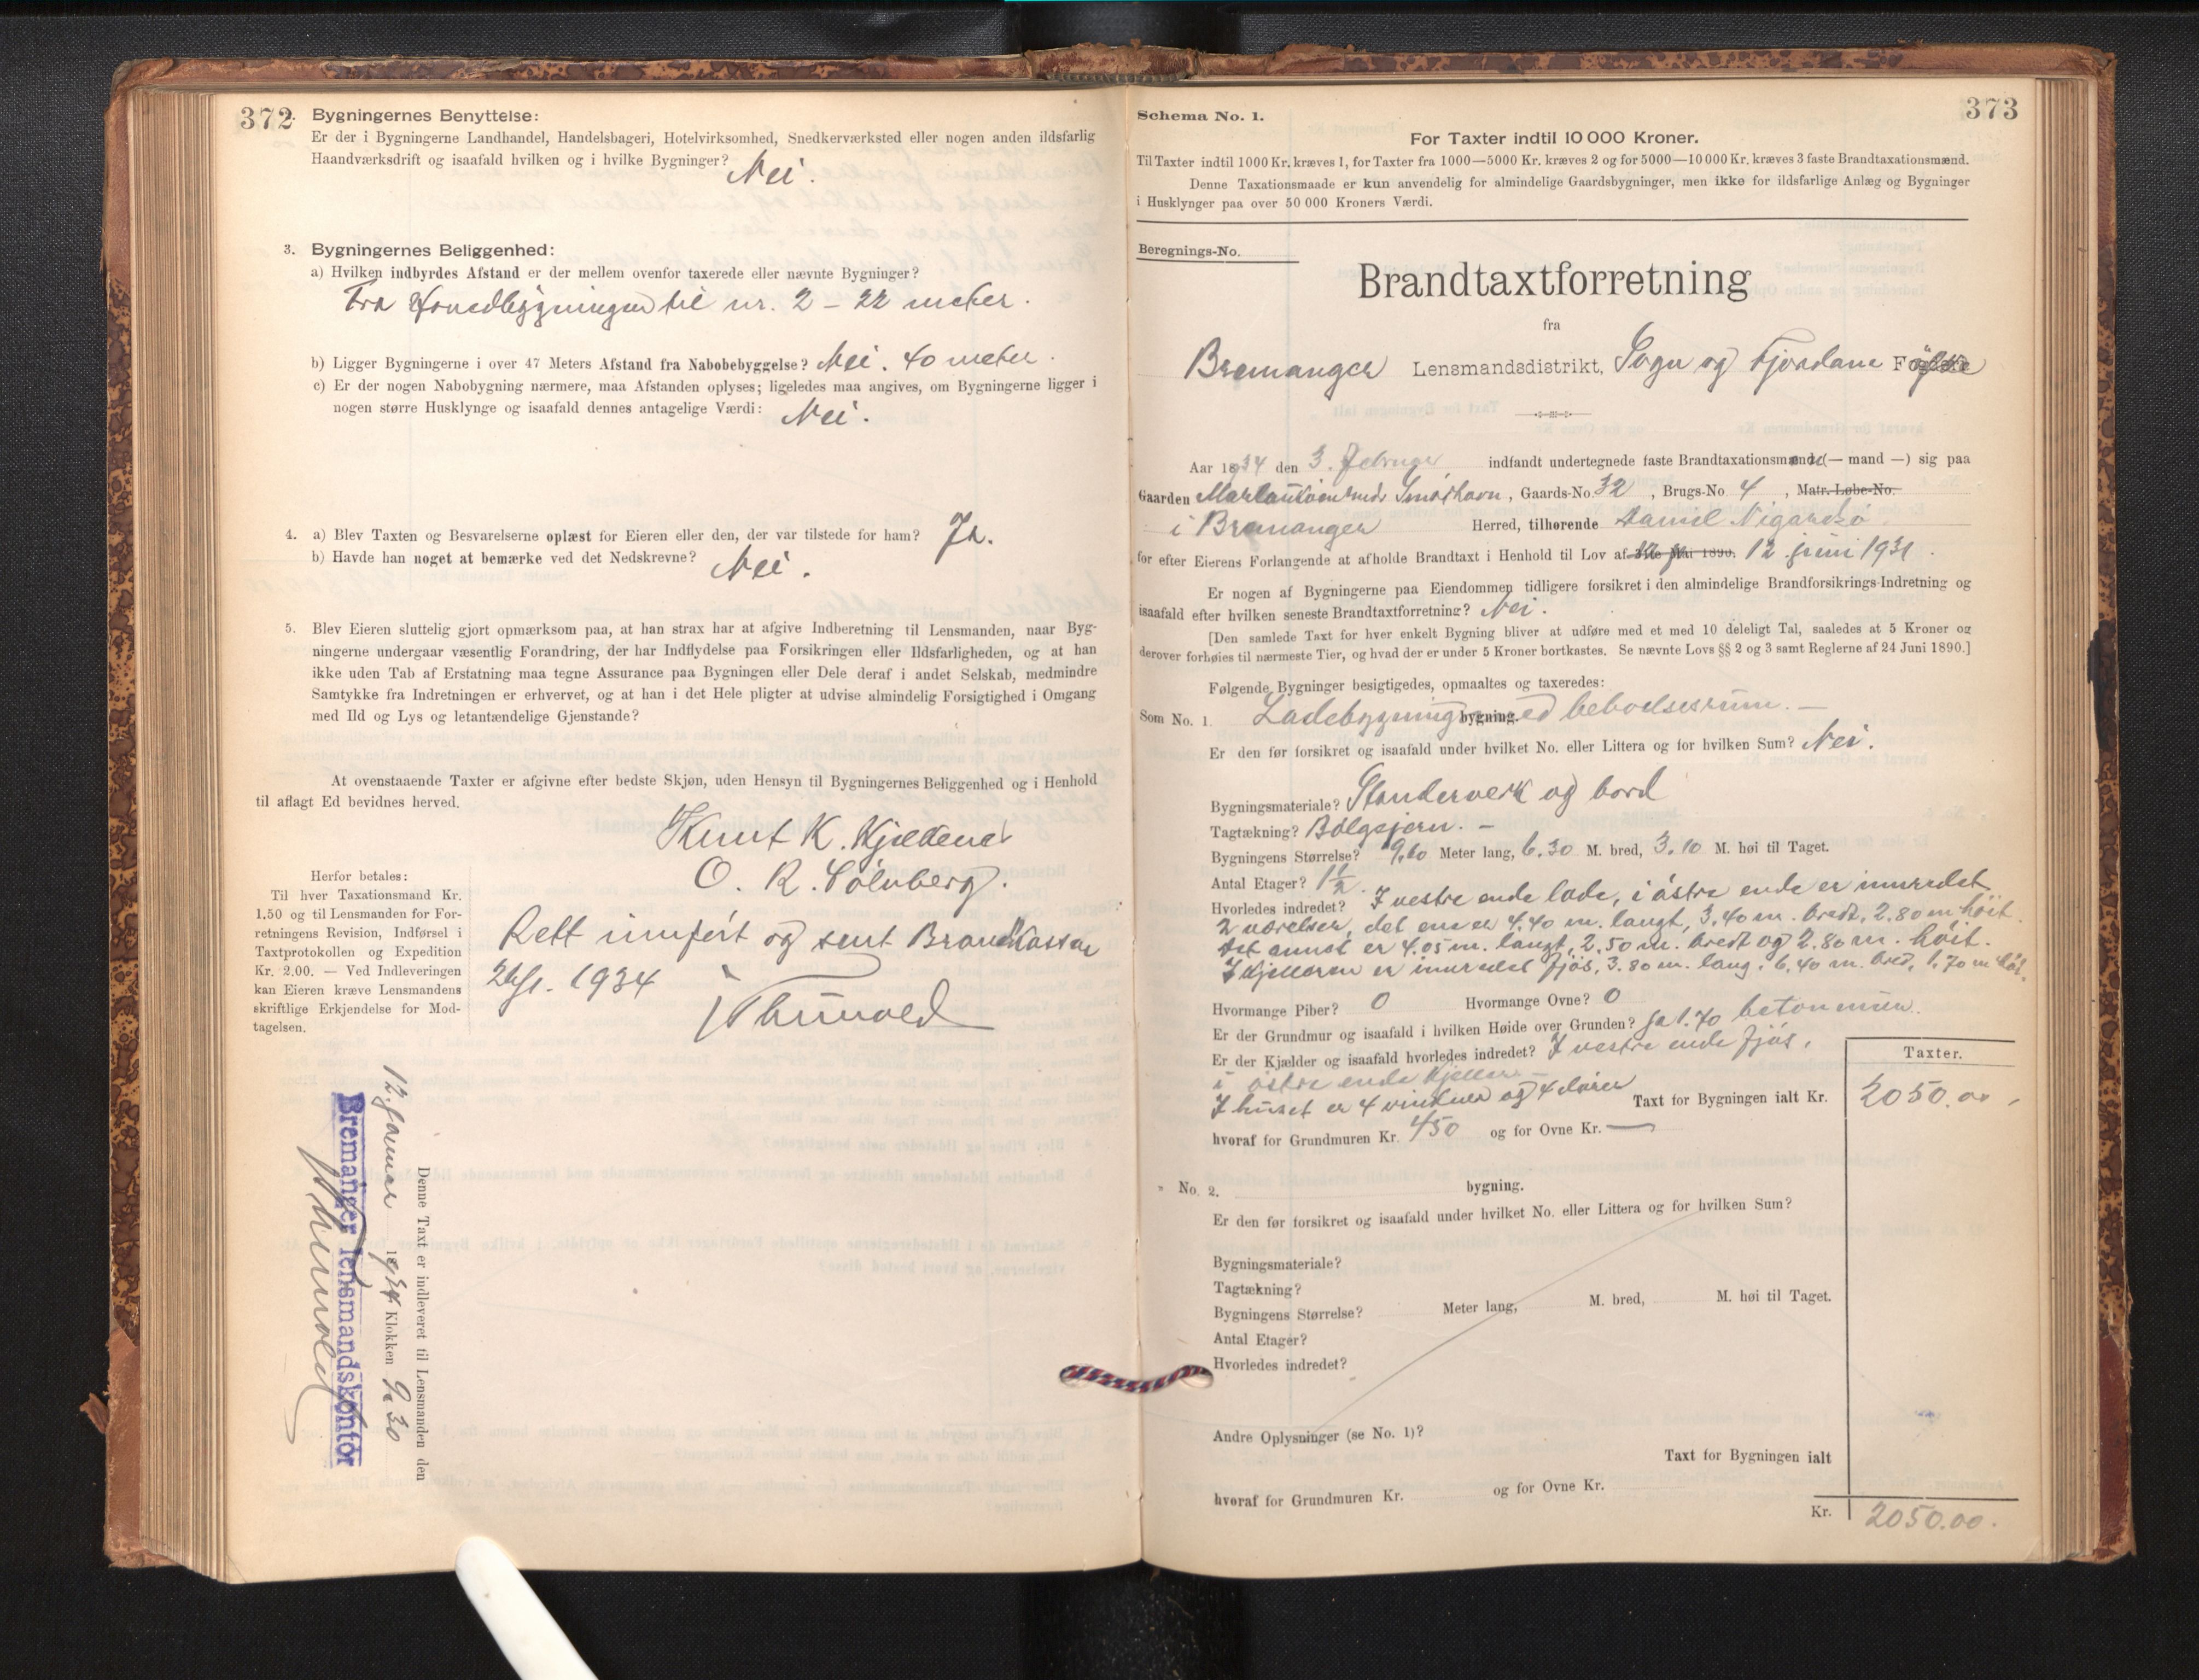 372
2. Bygningernes Benyttelse:
Er der i Bygningerne Landhandel, Handelsbageri, Hotelvirksomhed, Snedkerværksted eller nogen anden ildsfarlig
Haandværksdrift og isaafald hvilken og i hvilke Bygninger? Nei.
3. Bygningernes Beliggenhed:
a) Hvilken indbyrdes Afstand er der mellem ovenfor taxerede eller nævnte Bygninger?
Fra Hovedbygningen til nr. 2 - 22 meter.
b) Ligger Bygningerne i over 47 Meters Afstand fra Nabobebyggelse? Nei. 40 meter.
c) Er der nogen Nabobygning nærmere, maa Afstanden oplyses; ligeledes maa angives, om Bygningerne ligger i
nogen større Husklynge og isaafald dennes antagelige Værdi: Nei.
4. a) Blev Taxten og Besvarelserne oplæst for Eieren eller den, der var tilstede for ham? Ja.
b) Havde han noget at bemærke ved det Nedskrevne? Nei.
5. Blev Eieren sluttelig gjort opmærksom paa, at han strax har at afgive Indberetning til Lensmanden, naar Byg-
ningerne undergaar væsentlig Forandring, der har Indflydelse paa Forsikringen eller Ildsfarligheden, og at han
ikke uden Tab af Erstatning maa tegne Assurance paa Bygningen eller Dele deraf i andet Selskab, medmindre
Samtykke fra Indretningen er erhvervet, og at han i det Hele pligter at udvise almindelig Forsigtighed i Omgang
med Ild og Lys og letantændelige Gjenstande?
At ovenstaaende Taxter er afgivne efter bedste Skjøn, uden Hensyn til Bygningernes Beliggenhed og i Henhold
til aflagt Ed bevidnes herved.
Knut K.
O. R. Sølvberg.
Herfor betales:
Til hver Taxationsmand Kr.
1,50 og til Lensmanden for For-
retningens Revision, Indførsel i
Taxtprotokollen og Expedition
Kr. 2.00. — Ved Indleveringen
kan Eieren kræve Lensmandens
skriftlige Erkjendelse for Mod-
tagelsen.
Rett innført og sent Brandkassen
1934
Denne Taxt er indleveret til Lensmanden den
12. Januar 1934 Klokken 9.30
Bremanger lensmandskontor
373
Schema No. 1.
For Taxter indtil 10 000 Kroner.
Til Taxter indtil 1000 Kr. kræves 1, for Taxter fra 1000—5000 Kr. kræves 2 og for 5000—10 000 Kr. kræves 3 faste Brandtaxationsmænd.
Denne Taxationsmaade er kun anvendelig for almindelige Gaardsbygninger, men ikke for ildsfarlige Anlæg og Bygninger
i Husklynger paa over 50 000 Kroners Værdi.
Beregnings-No.
Brandtaxtforretning
fra
Bremanger Lensmandsdistrikt, Sogn og Fjordane
Aar 1934 den 3. Februar indfandt undertegnede faste Brandtaxationsmænd (— mand —) sig paa
Gaarden Smørhavn, Gaards-No. 32, Brugs-No. 4, Matr.-Løbe-No.
i Bremanger Herred, tilhørende Daniel Nigardsø
for efter Eierens Forlangende at afholde Brandtaxt i Henhold til Lov af 12 juni 1931.
Er nogen af Bygningerne paa Eiendommen tidligere forsikret i den almindelige Brandforsikrings-Indretning og
isaafald efter hvilken seneste Brandtaxtforretning? Nei.
[Den samlede Taxt for hver enkelt Bygning bliver at udføre med et med 10 deleligt Tal, saaledes at 5 Kroner og
derover forhøies til nærmeste Tier, og hvad der er under 5 Kroner bortkastes. Se nævnte Lovs §§ 2 og 3 samt Reglerne af 24 Juni 1890.]
Følgende Bygninger besigtigedes, opmaaltes og taxeredes:
Som No. 1. Ladebygning med beboelsesrum. —
Er den før forsikret og isaafald under hvilket No. eller Littera og for hvilken Sum? Nei.
Bygningsmateriale? Standerverk og bord
Tagtækning? Bølgejern. —
Bygningens Størrelse? 9,60 Meter lang, 6.30 M. bred, 3.10 M. høi til Taget.
Antal Etager? 1½.
Hvorledes indredet? I vestre ende lade, i østre ende er innredet
2 værelser, det ene er 4.40 m. langt, 3.40 m. bredt, 2.80 m høit.
det annet er 4.05 m. langt, 2.50 m. bredt og 2.80 m. høit.
I Kjelleren er innredet fjøs, 3.80 m. lang, 6.40 m. bred, 1.70 m høi.
Hvormange Piber? 0 Hvormange Ovne? 0
Er der Grundmur og isaafald i hvilken Høide over Grunden? ja 1.70 betonmur.
Er der Kjælder og isaafald hvorledes indredet? I vestre ende fjøs,
i østre ende Kjeller —
I huset er 4 vinduer og 4 dører
Taxter.
Taxt for Bygningen ialt Kr. 2050.00
hvoraf for Grundmuren Kr. 450 og for Ovne Kr. —
" No. 2. bygning.
Er den før forsikret og isaafald under hvilket No. eller Littera og for hvilken Sum?
Bygningsmateriale?
Tagtækning?
Bygningens Størrelse? Meter lang, M. bred, M. høi til Taget.
Antal Etager?
Hvorledes indredet?
Andre Oplysninger (se No. 1)?
Taxt for Bygningen ialt
hvoraf for Grundmuren Kr. og for Ovne Kr.
Kr. 2050.00.